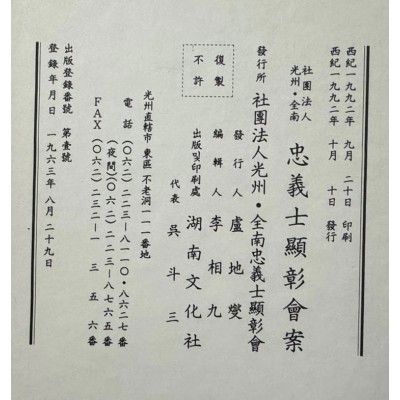 西紀一九九二年 九月 二十日 印刷
西紀一九九二年 十月 十日 發行
社團法人
光州・全南
忠義士顯彰會案
發行所 社團法人光州・全南忠義士顯彰會
復製
不許
發行人 盧地燮
編輯人 李相九
出版및印刷處 湖南文化社
代表 吳斗三
光州直轄市 東區 不老洞一一一番地
電話 (〇六二)二二三―八一一〇・八六二七番
(夜間)(〇六二)二二三―八七六五番
FAX (〇六二)二三二―一三五六番
出版登錄番號 第壹號
登錄年月日 一九六三年八月二十九日